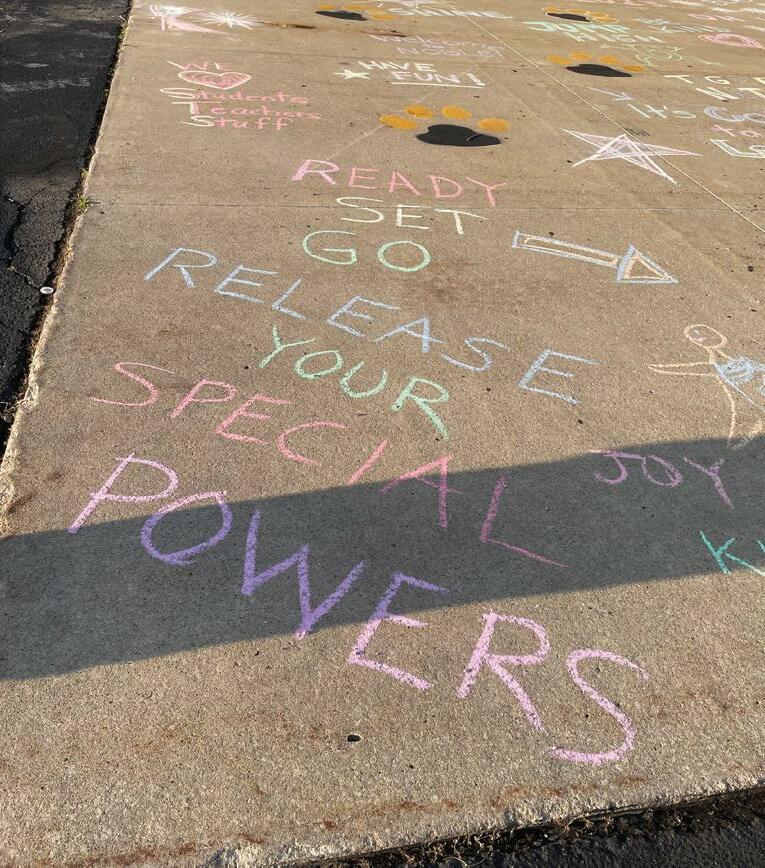 SHINE
WE
HAVE
FUN!
Students
Teachers
Staff
It's
READY
SET
GO
RELEASE
YOUR
SPECIAL
POWERS
JOY